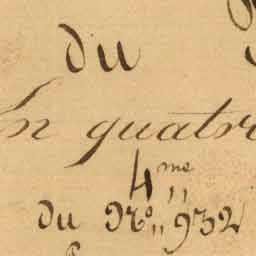 du
En quatri
4me
du No 932